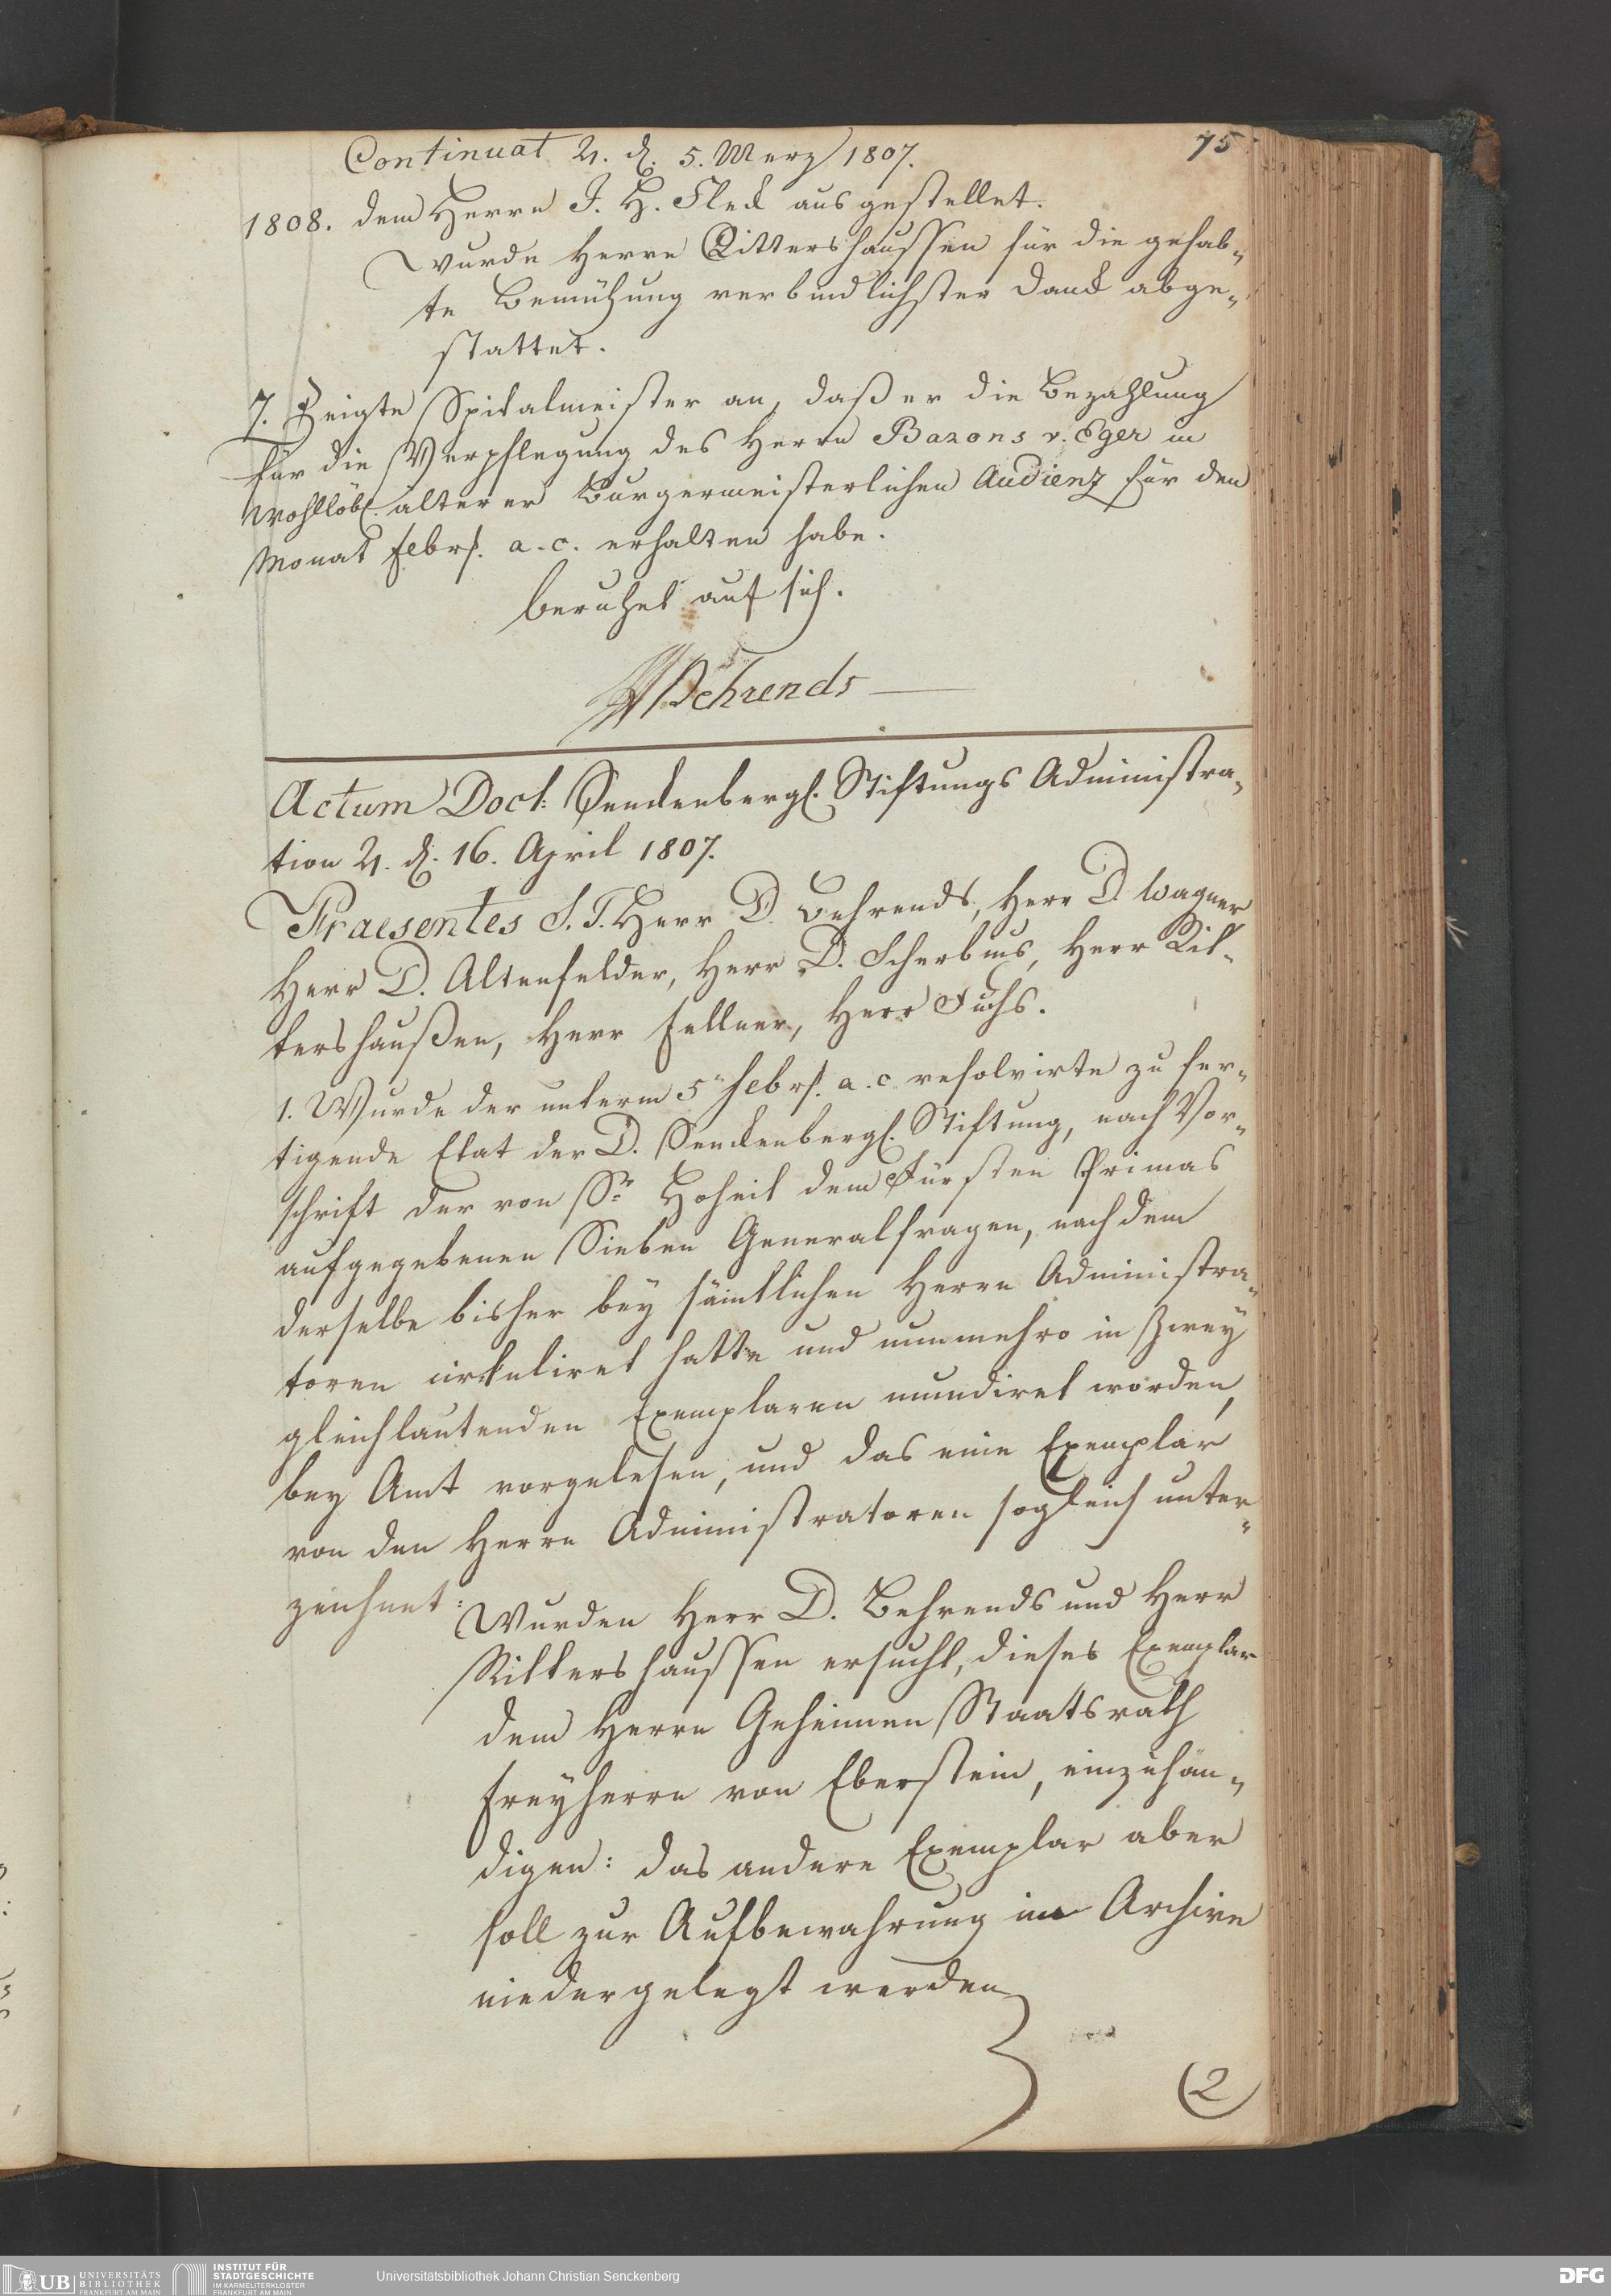 Continuat ♃. d. 5. Merz 1807.
75
1808. dem Herrn J. H. Fleck ausgestellet.
Wurde Herrn Rittershaussen für die gehab-
te Bemühung verbindlichster Danck abge-
stattet.
7. Zeigte Spitalmeister an, daß er die Bezahlung
für die Verpflegung des Herrn Barons v. Eger in
Wohllöbl. älterer Burgermeisterlichen Audienz für den
Monat Febr. a. c. erhalten habe.
beruhet auf sich.
Behrends
Actum Doct: Senckenbergl. Stiftungs Administra-
tion ♃. d. 16. April 1807.
Praesentes S. T. Herr D. Behrends, Herr D. Wagner
Herr D. Altenfelder, Herr D. Scherbius, Herr Rit-
tershaußen, Herr Fellner, Herr Fuchs.
1. Wurde der unterm 5n Febr. a. c. resolvirte zu fer-
tigende Etat der D. Senckenbergl. Stiftung, nach Vor-
schrift der von Sr. Hoheit dem Fürsten Primas
aufgegebenen Sieben Generalfragen, nachdem
derselbe bisher bey sämtlichen Herrn Administra-
toren cirkuliret hatte und nunmehro in Zwey
gleichlautenden Exemplaren mundiret worden,
bey Amt vorgelesen, und das eine Exemplar
von den Herrn Administratoren sogleich unter-
zeichnet:
Wurden Herr D. Behrends und Herr
Rittershaussen ersucht, dieses Exemplar
dem Herrn Geheimen Staatsrath
Freyherrn von Eberstein, einzuhän-
digen: das andere Exemplar aber
soll zur Aufbewahrung im Archive
niedergelegt werden
2
UB UNIVERSITÄTS
BIBLIOTHEK
FRANKFURT AM MAIN
INSTITUT FÜR
STADTGESCHICHTE
IM KARMELITERKLOSTER
FRANKFURT AM MAIN
Universitätsbibliothek Johann Christian Senckenberg
DFG